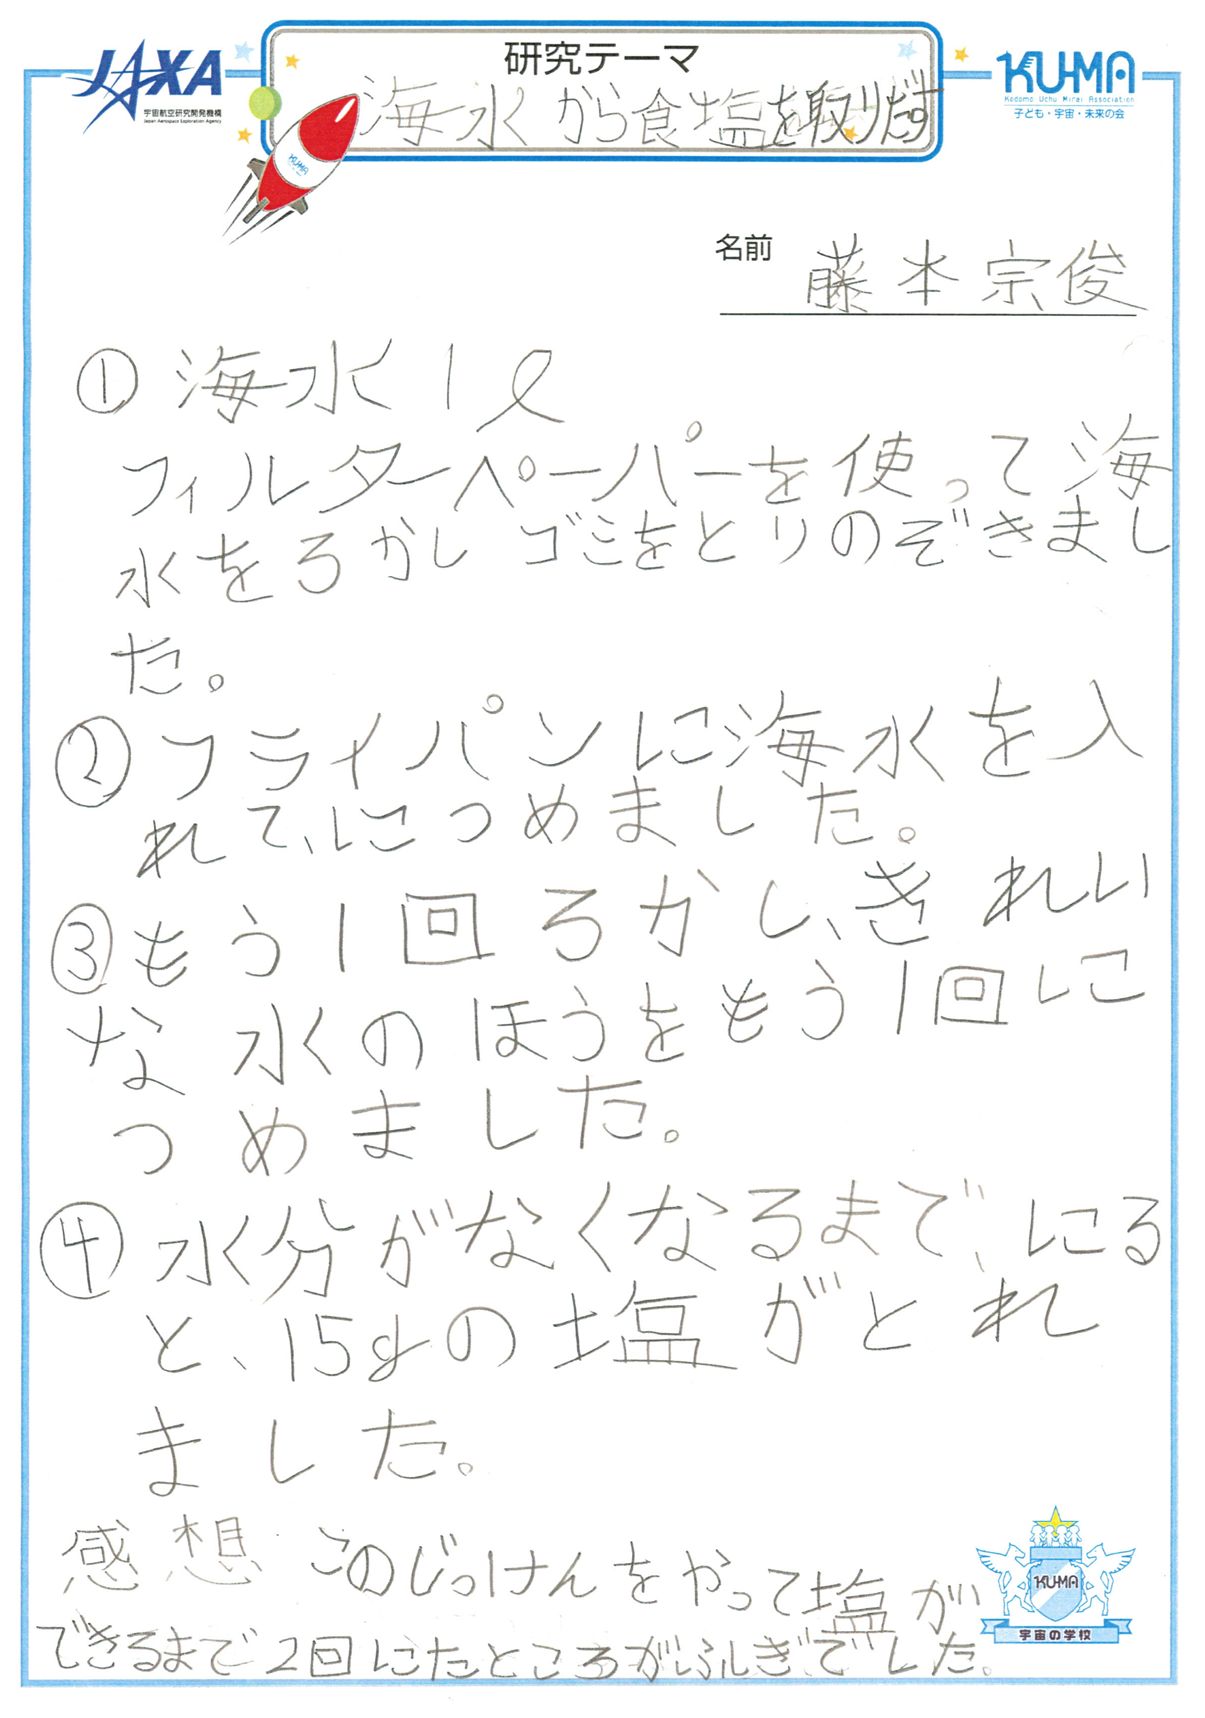 JAXA
宇宙航空研究開発機構
Japan Aerospace Exploration Agency
研究テーマ
海水から食塩を取りだす
KU-MA
Kodomo Uchu Mirai Association
子ども・宇宙・未来の会
KUMA
名前 藤本宗俊
① 海水1ℓ
フィルターペーパーを使って海
水をろかしゴミをとりのぞきまし
た。
② フライパンに海水を入
れて、につめました。
③ もう1回ろかし、きれい
な水のほうをもう1回に
つめました。
④ 水分がなくなるまで、にる
と、15gの塩がとれ
ました。
感想 このじっけんをやって塩が
できるまで2回にたところがふしぎでした。
KU-MA
宇宙の学校